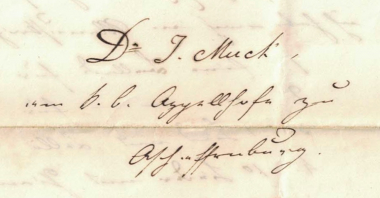 Dr. J. Muck,
am k. b. Appellhofe zu
Aschaffenburg.